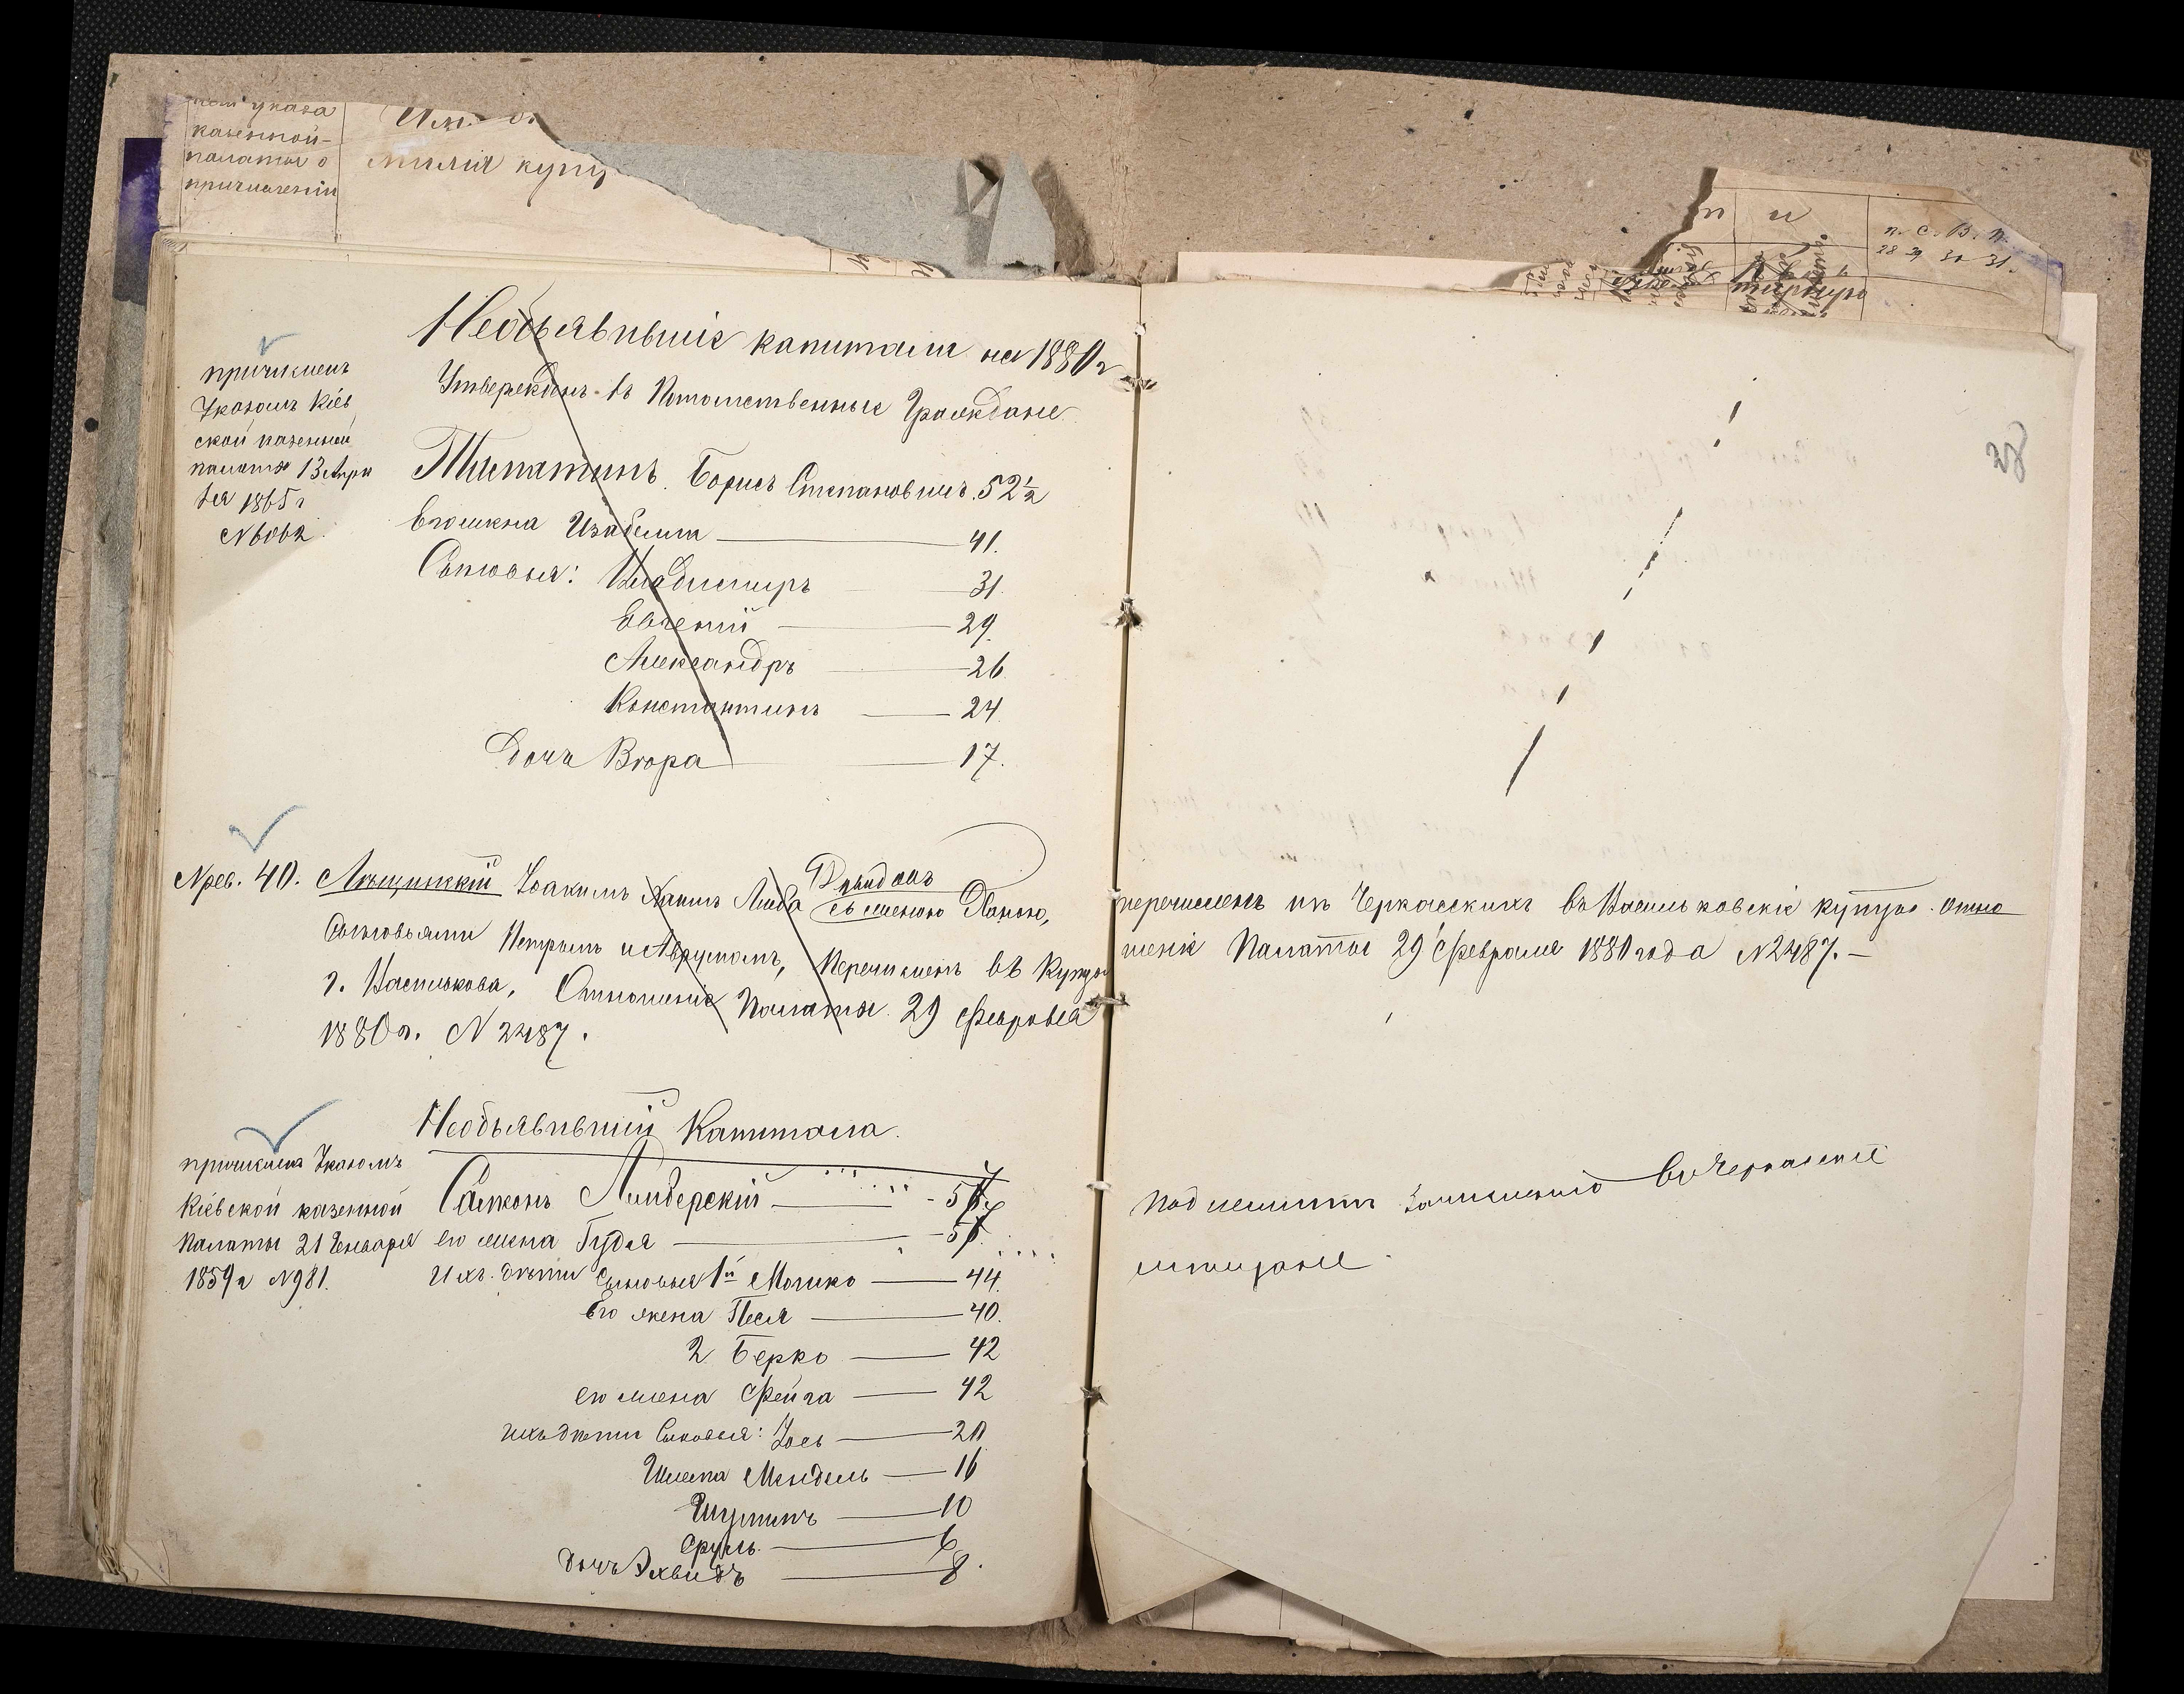 указа
казенной
палаты о
причислении
милія купц
п. С. В. П.
28 29 30 31.
28
Необъявившіе капитала на 1880 г
Утвержденъ въ Потомственные Граждане
причисленъ
Указомъ Кіев
ской казенной
палаты 13 Апре
ля 1865 г
Борисъ Степановичъ. 52½
Его жена Изабелла 41.
Сыновья: Владимиръ 31.
Евгеній 29.
Александръ 26.
Константинъ 24.
Дочь Вѣра 17.
N рев. 40. Лещинскій Іоакимъ Хаимъ Лейба Давидовъ
съ женою Ханою,
Сыновьями Петромъ и Абрумомъ, Перечисленъ въ Купцы
г. Василькова, Отношеніе Палаты 29 Февраля
1880 г. N 2487.
перечисленъ изъ Черкасскихъ въ Васильковскіе купцы. Отно
шеніе Палаты 29 Февраля 1880 года N 2487.—
Необъявившій Капитала.
причислена Указомъ
Кіевской казенной
Палаты 21 Января
1859 г N 981.
Линдерскій 57
его жена Гудля 57.
Ихъ дѣти Сыновья 1й Мошко 44.
Его жена Песя 40.
2 Берко 42
его жена Фейга 42
ихъ дѣти Сыновья: Іось 20
Шлема Мендель 16
10
Сруль 6
дочь 8.
Подлежитъ Зачисленію въ Черкаскіе
мещане